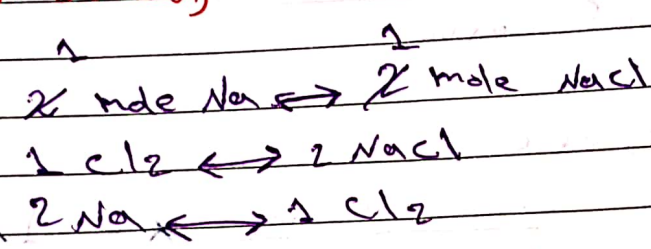 1 1
2 mole Na ↔ 2 mole NaCl
1 Cl2 ↔ 2 NaCl
2 Na ↔ 1 Cl2